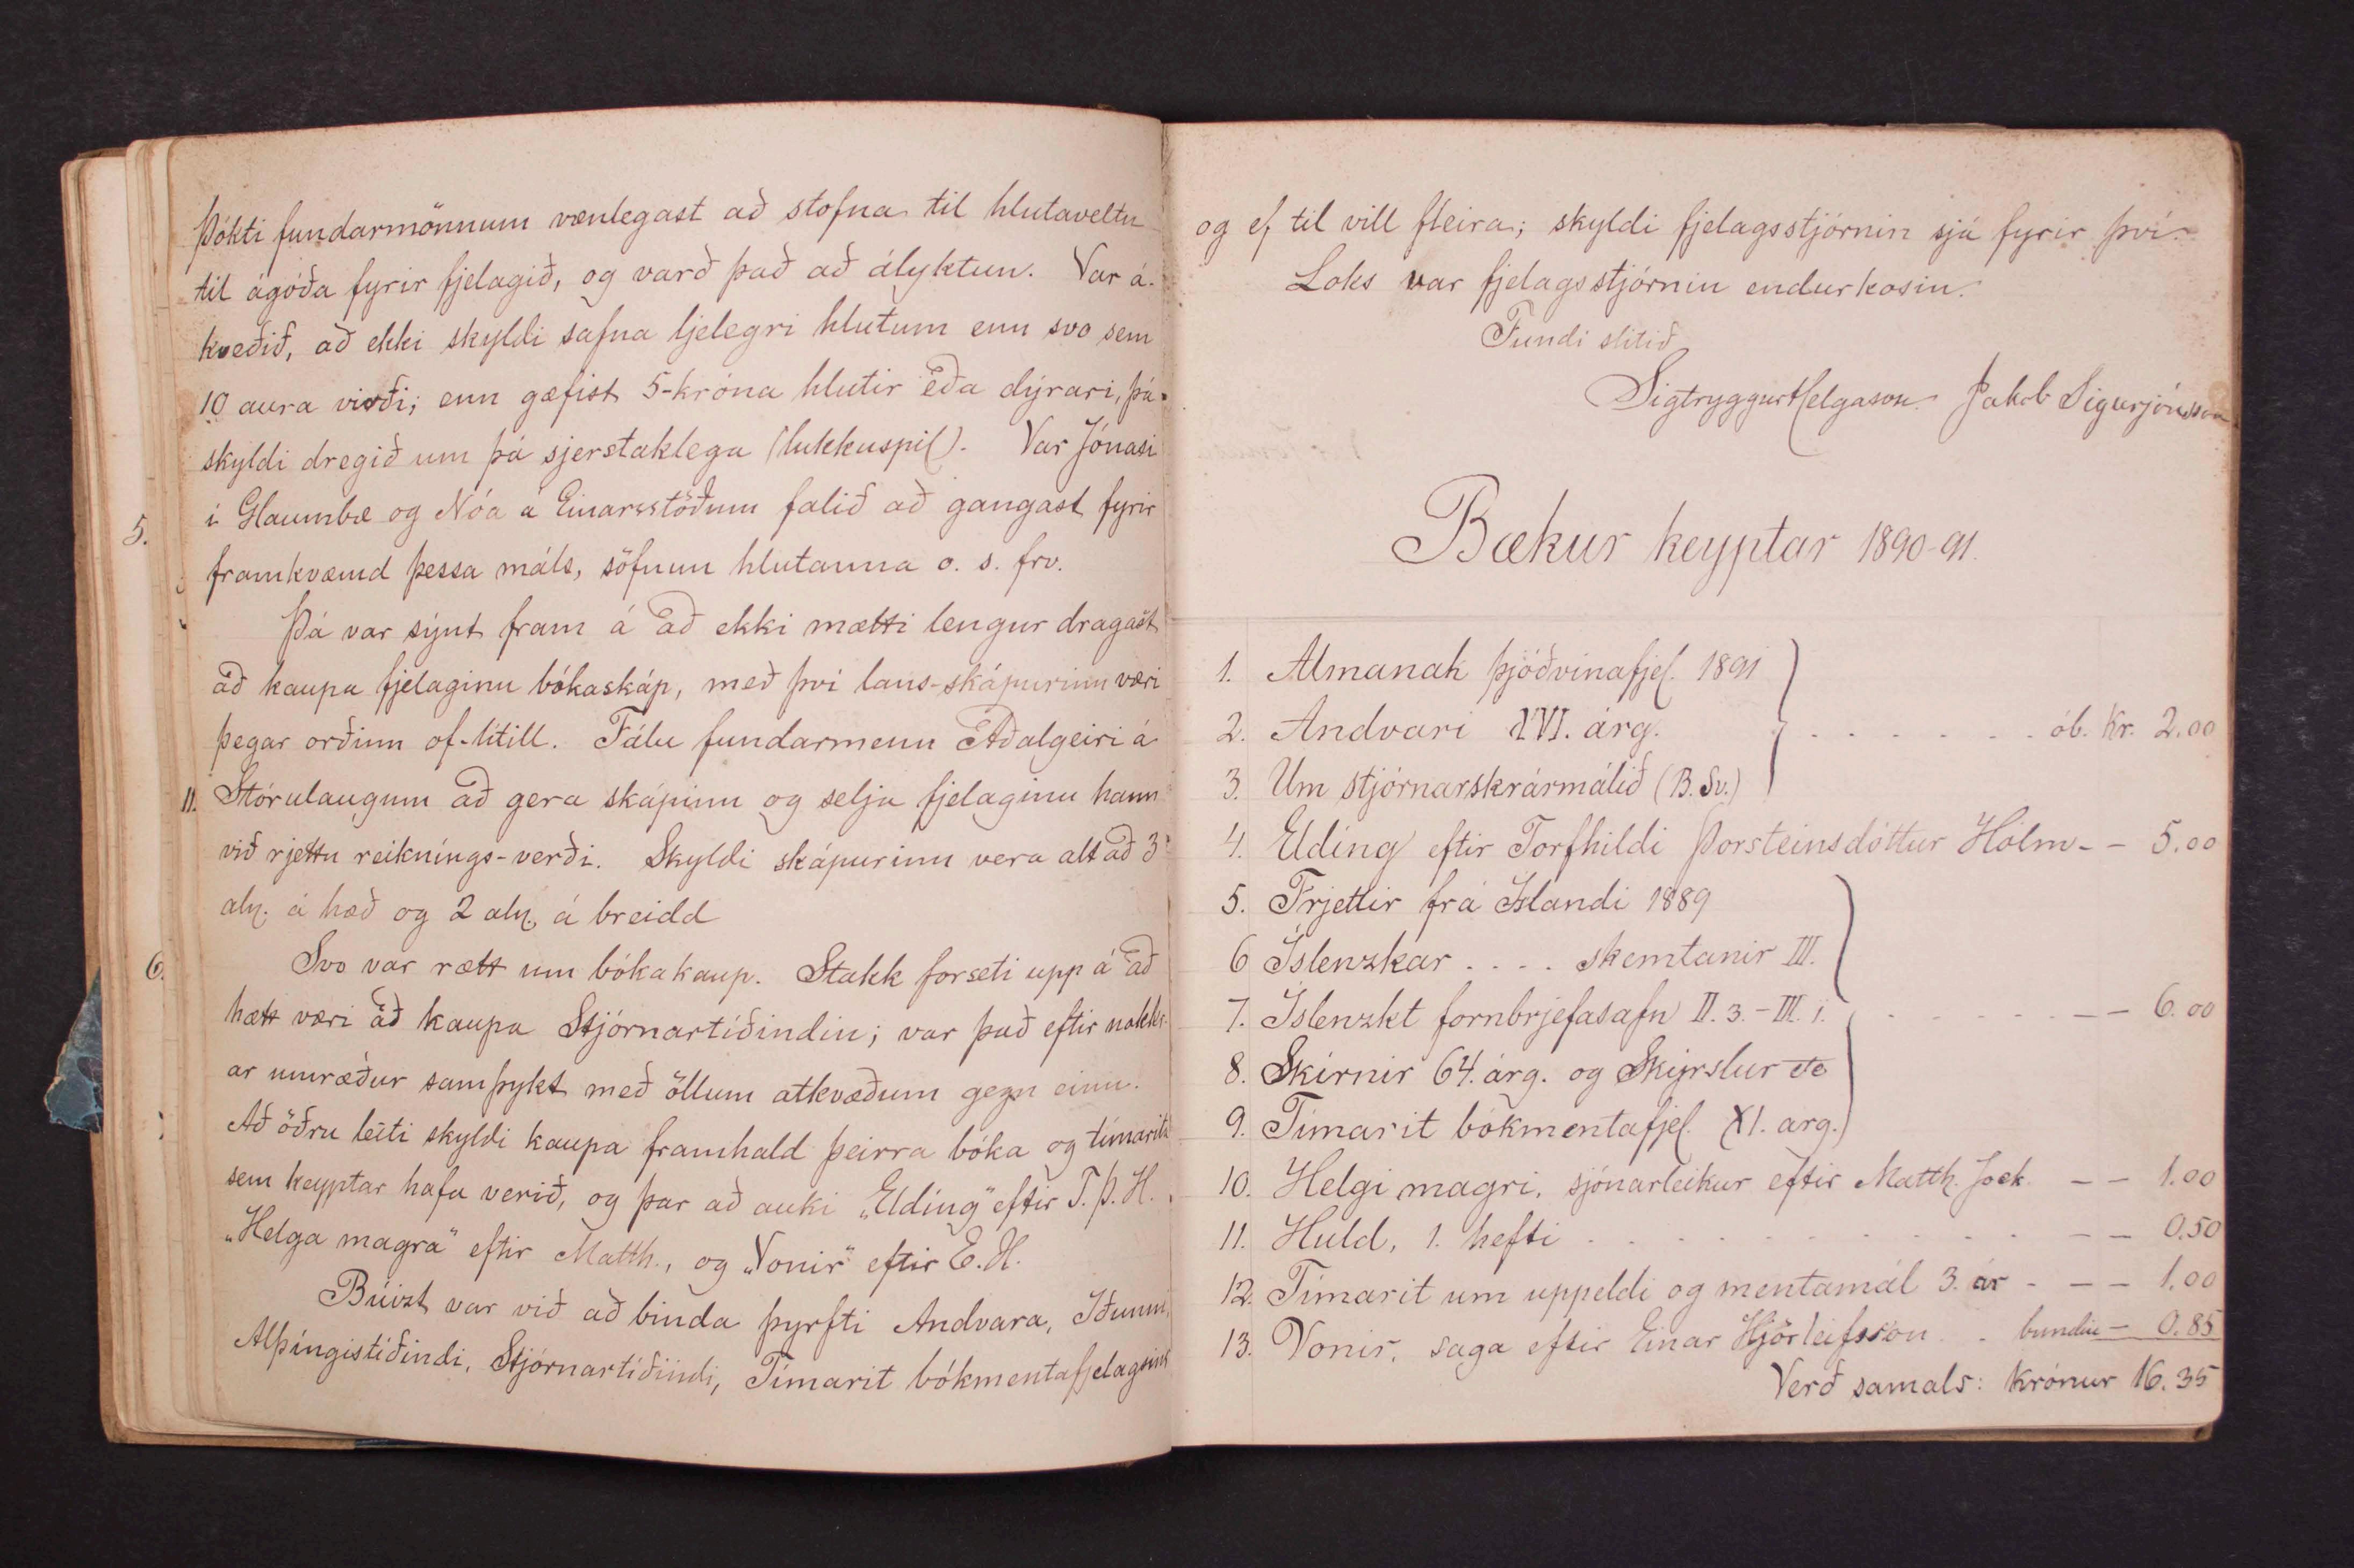 Þókti fundarmönnum vænlegast að stofna til hlutaveltu
til ágóða fyrir fjelagið, og varð það að ályktun. Var á-
kveðið, að ekki skyldi safna ljelegri hlutum enn svo sem
10 aura virði; enn gæfist 5-króna hlutir eða dýrari, þá
skyldi dregið um þá sjerstaklega (lukkuspil). Var Jónasi
í Glaumbæ og Nóa á Einarsstöðum falið að gangast fyrir
framkvæmd þessa máls, söfnun hlutanna o. s. frv.
5.
Þá var sýnt fram á að ekki mætti lengur dragast
að kaupa fjelaginu bókaskáp, með því laus-skápurinn væri
þegar orðinn of-lítill. Fálu fundarmenn Aðalgeiri á
11. Stórulaugum að gera skápinn og selja fjelaginu hann
við rjettu reiknings-verði. Skyldi skápurinn vera alt að 3
aln. á hæð og 2 aln. á breidd
6.
Svo var rætt um bókakaup. Stakk forseti upp á að
hætt væri að kaupa Stjórnartíðindin; var það eftir nokkr-
ar umræður samþykt með öllum atkvæðum gegn einu.
Að öðru leiti skyldi kaupa framhald þeirra bóka og tímarita
sem keyptar hafa verið, og þar að auki „Elding" eftir T. Þ. H.
„Helga magra" eftir Matth., og „Vonir" eftir E. H.
Búizt var við að binda þyrfti Andvara, Iðunni,
Alþingistíðindi, Stjórnartíðindi, Tímarit bókmentafjelagsins
og ef til vill fleira; skyldi fjelagsstjórnin sjá fyrir því.
Loks var fjelagsstjórnin endurkosin.
Fundi slitið
Sigtryggur Helgason Jakob Sigurjónsson
Bækur keyptar 1890-91.
1. Almanak þjóðvinafjel. 1891
2. Andvari XVI. árg. . . . . . . . ób. Kr. 2.00
3. Um stjórnarskrármálið (B. Sv.)
4. Elding eftir Torfhildi Þorsteinsdóttur Hólm - - 5.00
5. Frjettir frá Íslandi 1889
6 Íslenzkar . . . . skemtanir III.
7. Íslenzkt fornbrjefasafn II. 3. - III. 1. . . . . . - - 6.00
8. Skírnir 64. árg. og Skýrslur etc
9. Tímarit bókmentafjel. XI. arg.
10. Helgi magri, sjónarleikur eftir Matth. Joch. - - 1.00
11. Huld, 1. hefti . . . . . . . . . . - - 0.50
12. Tímarit um uppeldi og mentamál 3. ár - - - 1.00
13. Vonir, saga eftir Einar Hjörleifsson . . bundin - 0.85
Verð samals: Krónur 16.35